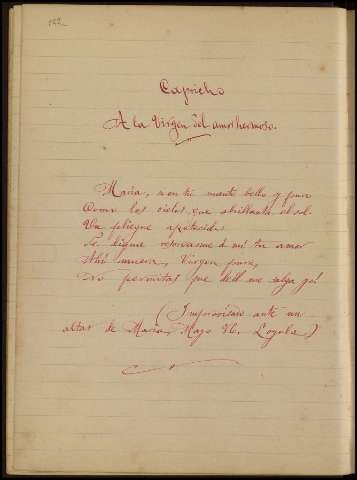 162
Capricho
A la Virgen del amor hermoso.
Maria, en tu manto bello y puro
Como los cielos que abrillanta el sol
Un pliegue apetecido
Se digne reservarme á mi tu amor
Ahi muera, Virgen pura,
No permitas que dél me salga yó
(Improvisado ante un
altar de Maria, Mayo 86, Loyola.)